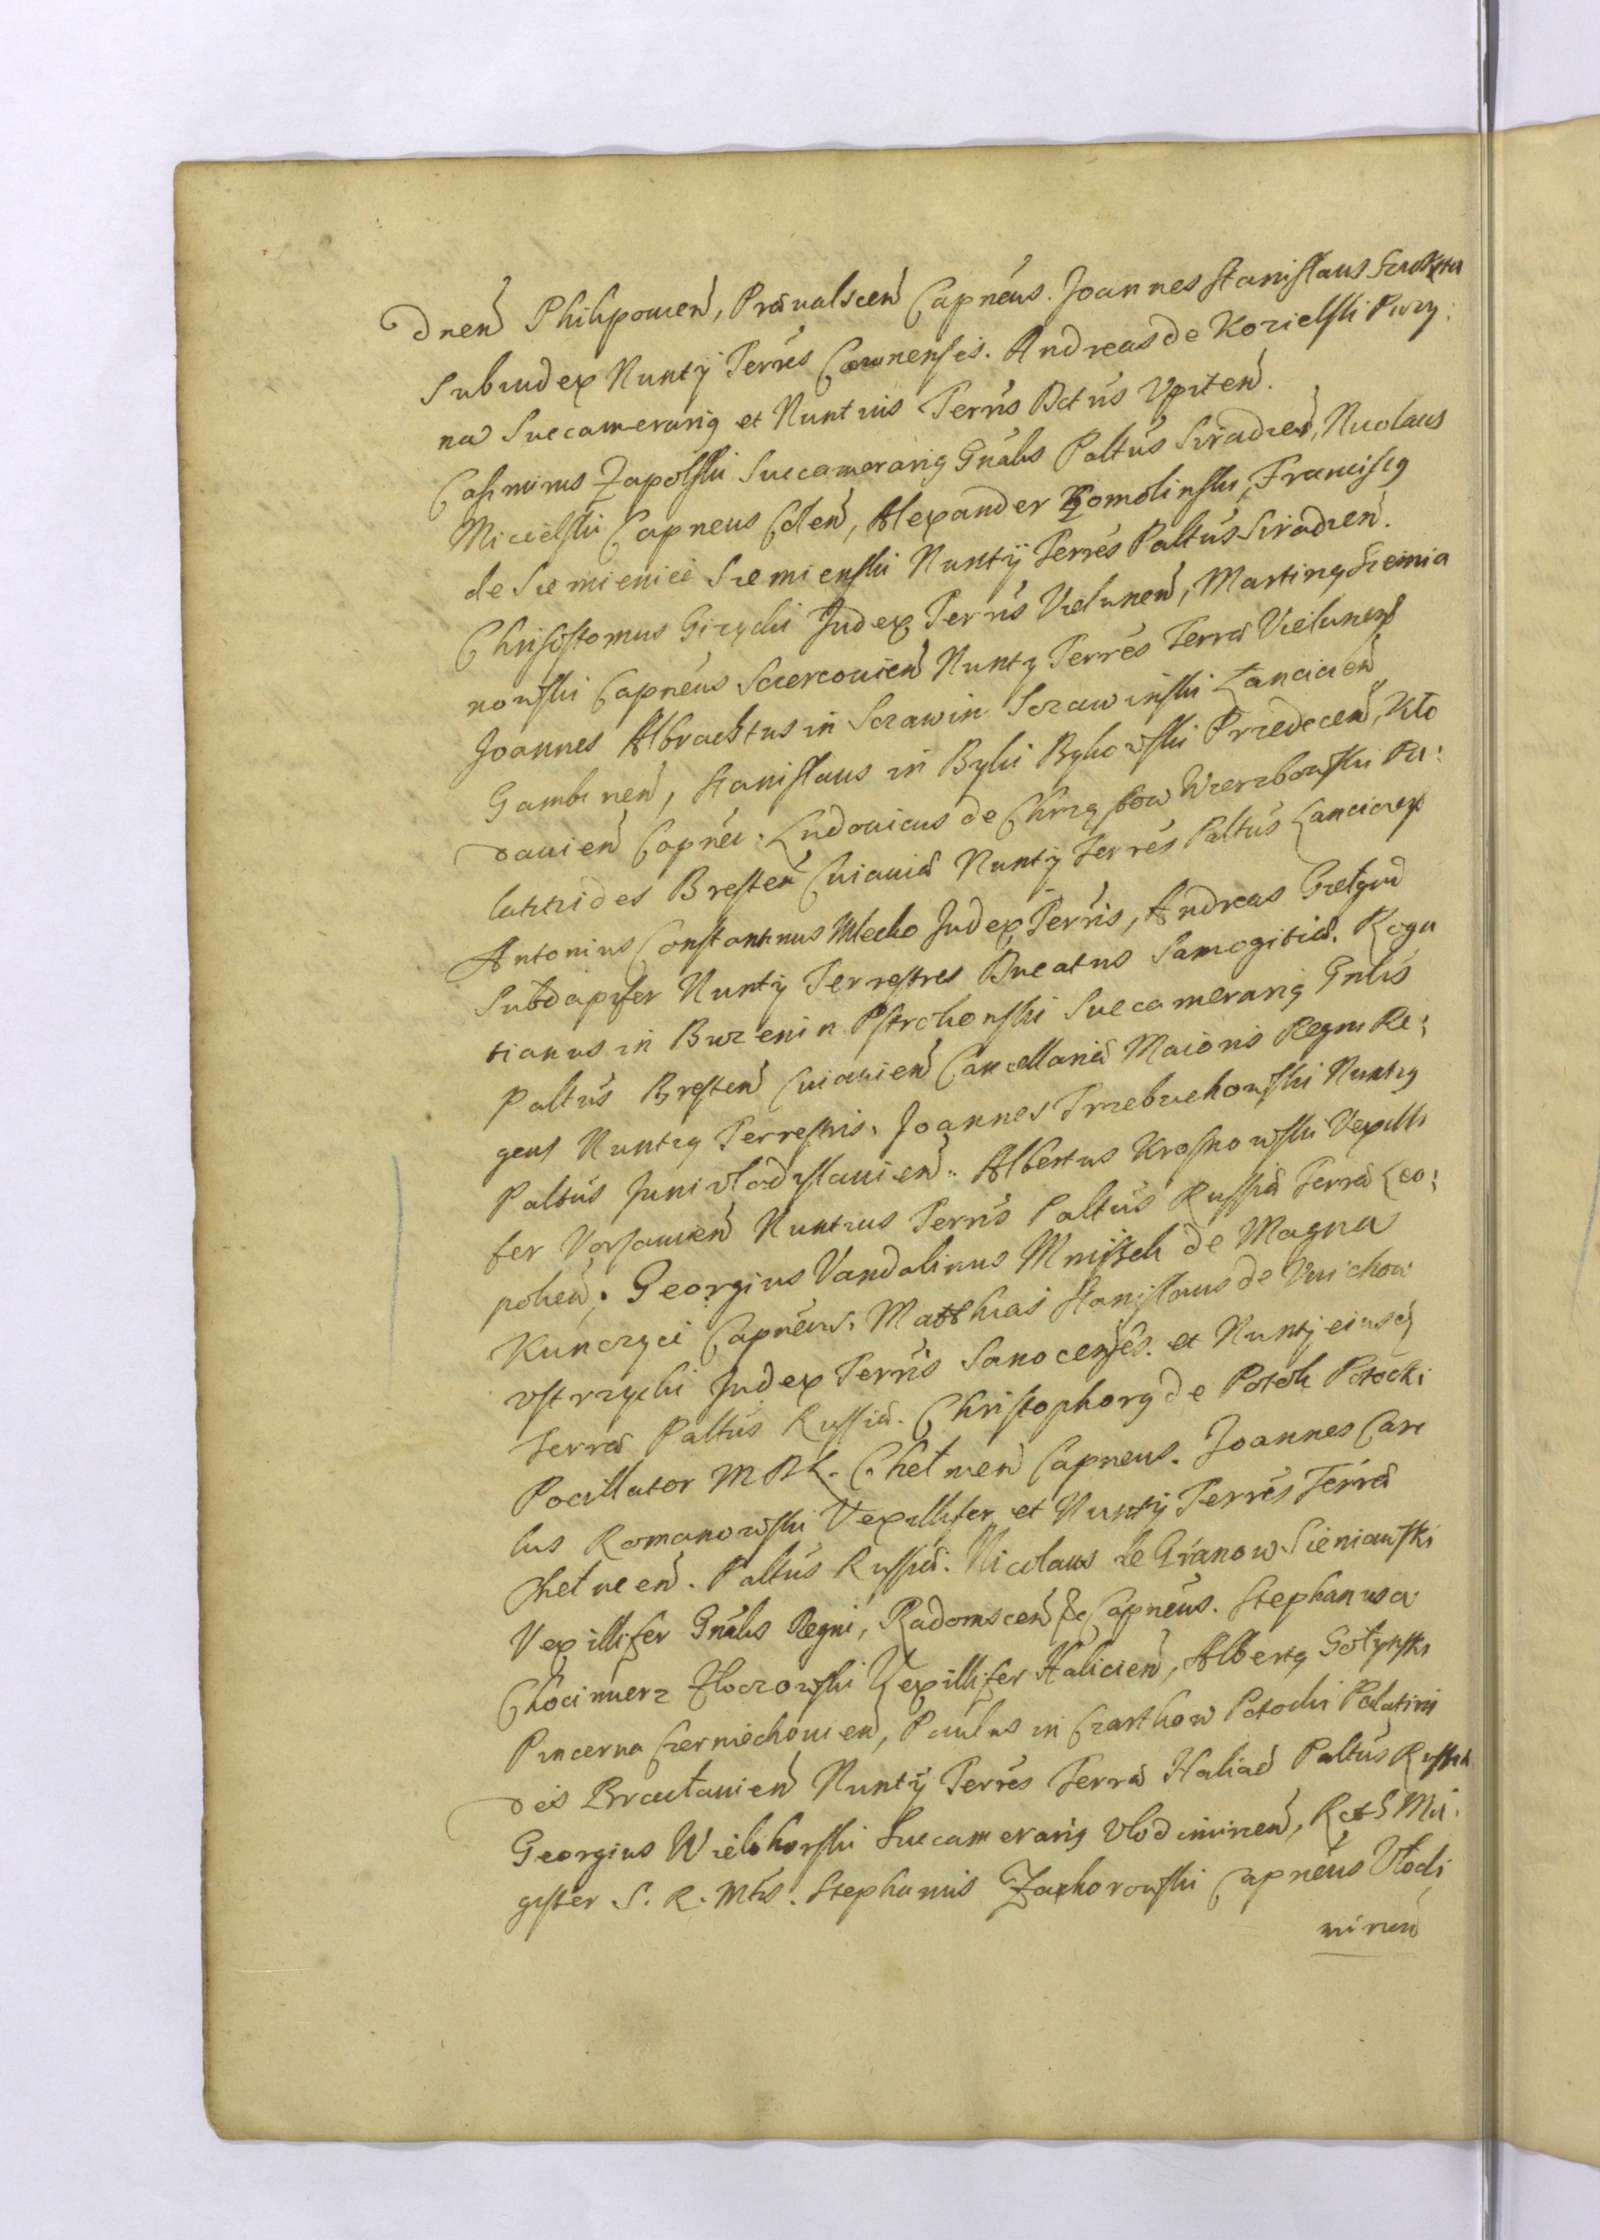 dnen Philipouien, Prauałscen Capneus. Joannes Stanislaus Szukszta
Subiudex Nuntÿ Terres Caunenses. Andreas de Kozielski Puzy:
na Succamerariq et Nuntius Terris Dctus Upiten.
Casimirus Zapolski Succamerariq Gnalis Paltus Siradien, Nicolaus
Micielski Capneus Colen, Alexander Komolinski, Franciscq
de Siemienice Siemienski Nuntÿ Terres Paltus Siradien.
Chrisostomus Gizycki Judex Terris Vielunen, Martinq Siemia
nowski Capneus Sciercouien Nuntÿ Terres Terra Vielunen
Joannes Albrachtus in Sczawin Sczawinski Lancicien
Gambinen, Stanislaus in Byki Bykowski Przedecen, Kło
dauien Capnei. Ludouicus de Chrząstow Wierzbowski Pa:
latizides Bresten Cuiauia Nuntÿ Terres Paltus Lancicien
Antonius Constantinus Mlecko Judex Terris, Andreas Giełgud
Subdapifer Nuntÿ Terrestres Ducatus Samogitia. Roga
tianus in Buzenin Pstrokonski Succamerariq Gnlis
Paltus Bresten Cuiauien Cancellaria Maioris Regni Re:
gens Nuntiq Terrestris. Joannes Trzebuchowski Nuntiq
Paltus Juniwladislauien. Albertus Krosnowski Vexilli
fer Varsauien Nuntius Terris Paltus Russia Terra Leo:
polien. Georgius Vandalinus Mniszek de Magna
Kunczyce Capneus. Matthias Stanislaus de Unichow
Ustrzycki Judex Terris Sanocenses. et Nuntÿ eiusdq
Terra Paltus Russia. Christophorq de Potok Potocki
Pocillator M D L. Chełmen Capneus. Joannes Caro
lus Romanowski Vexillifer et Nuntÿ Terres Terra
Chełmen. Paltus Russia. Nicolaus de Granow Sieniawski
Vexillifer Gnalis Regni, Radomscen &c Capneus. Stephanus a
Chocimierz Zloczowski Vexillifer Halicien, Albertq Gołynski
Pincerna Czerniechouien, Paulus in Czastkow Potocki Palatini
des Bracłauien Nuntÿ Terres Terra Halicien Paltus Russia
Georgius Wielhorski Succamerariq Vlodimirien, R et S Ma:
gister S. R. Mtis. Stephanus Zachorowski Capneus Włodi
mirien